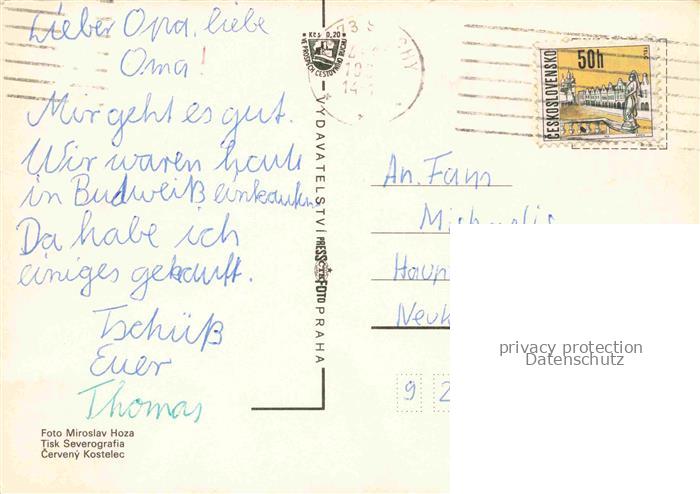 Lieber Opa, liebe
Oma!
Mir geht es gut.
Wir waren heute
in Budweiß einkaufen
Da habe ich
einiges gekauft.
Tschüß
Euer
Thomas
Foto Miroslav Hoza
Tisk Severografia
Červený Kostelec
Kčs 0,20
VE PROSPĚCH CESTOVNÍHO RUCHU
VYDAVATELSTVÍ PRESSFOTO PRAHA
73
CHY
50h
ČESKOSLOVENSKO
TELČ
An Fam
Michaelis
Haup
Neuk
9 2
privacy protection
Datenschutz